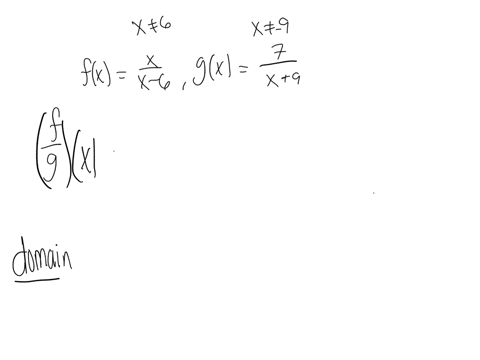 x≠6 x≠-9
f(x) = x/(x-6), g(x) = 7/(x+9)
(f/g)(x)
domain